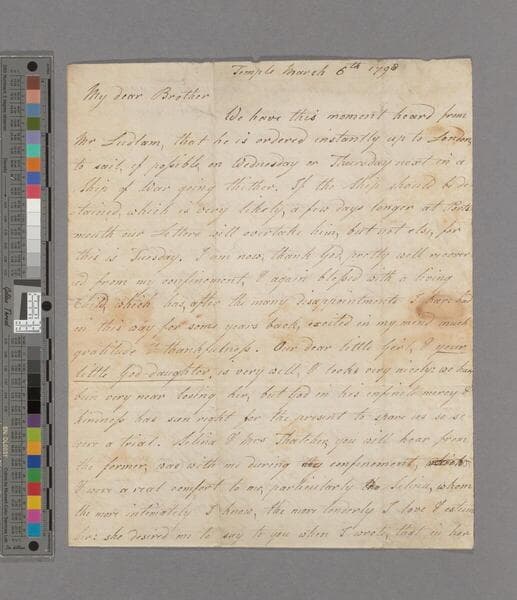 Temple March 6th 1798
My dear Brother
We have this moment heard from
Mr Ludlam, that he is ordered instantly up to London,
to sail, if possible, on Wednesday or Thursday next in a
Ship of War going thither. If the Ship should be de-
tained, which is very likely, a few days longer at Ports-
mouth our Letters will overtake him, but not else, for
this is Tuesday. I am now, thank God, pretty well recover
ed from my confinement, & again blessed with a living
Child, which has, after the many disappointments I have had
in this way for some years back, excited in my mind much
gratitude & thankfulness. Our dear little Girl, & your
little God-daughter, is very well, & looks very nicely: we have
been very near losing her, but God in his infinite mercy &
kindness has seen right for the present to spare us so se
vere a trial. Selina & Mrs Thatcher, you will hear from
the former, was with me during confinement,
& were a real comfort to me, particularly Selina, whom
the more intimately I know, the more tenderly I love & esteem
her: she desired me to say to you when I wrote, that in her